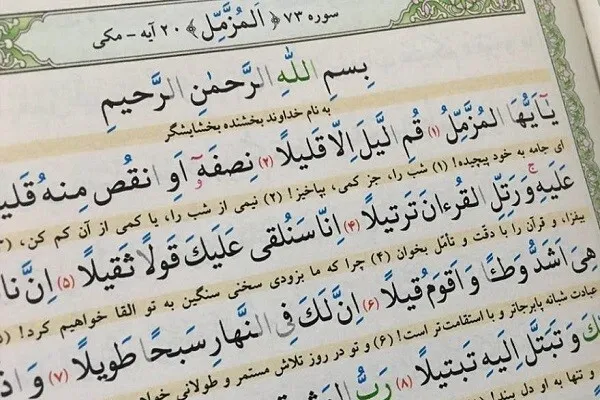 سوره ۷۳ ﴿ اَلمُزَّمِّل ﴾ ۲۰ آیه - مکی
بِسمِ اللهِ الرَّحمٰنِ الرَّحیمِ
به نام خداوند بخشنده بخشایشگر
یٰٓاَیُّهَا المُزَّمِّلُ (۱) قُمِ الَّیلَ اِلّا قَلیلًا (۲) نِصفَهٓ اَوِ انقُص مِنهُ قَلی
ای جامه به خود پیچیده! (۱) شب را، جز کمی، بپاخیز! (۲) نیمی از شب را، یا کمی از آن کم کن،
عَلَیهِ وَ رَتِّلِ القُرءانَ تَرتیلًا (۴) اِنّا سَنُلقی عَلَیکَ قَولًا ثَقیلًا (۵) اِنَّ نا
بیفزا، و قرآن را با دقّت و تأمّل بخوان (۴) چرا که ما بزودی سخنی سنگین به تو القا خواهیم کرد!
هِیَ اَشَدُّ وَطـًٔا وَ اَقوَمُ قیلًا (۶) اِنَّ لَکَ فِی النَّهارِ سَبحًا طَویلًا (۷) وَ اذ
عبادت شبانه پابرجاتر و با استقامت‌تر است! (۶) و تو در روز تلاش مستمر و طولانی خواهی
کَ وَ تَبَتَّل اِلَیهِ تَبتیلًا (۸) رَبُّ
و تنها به او دل ببند!